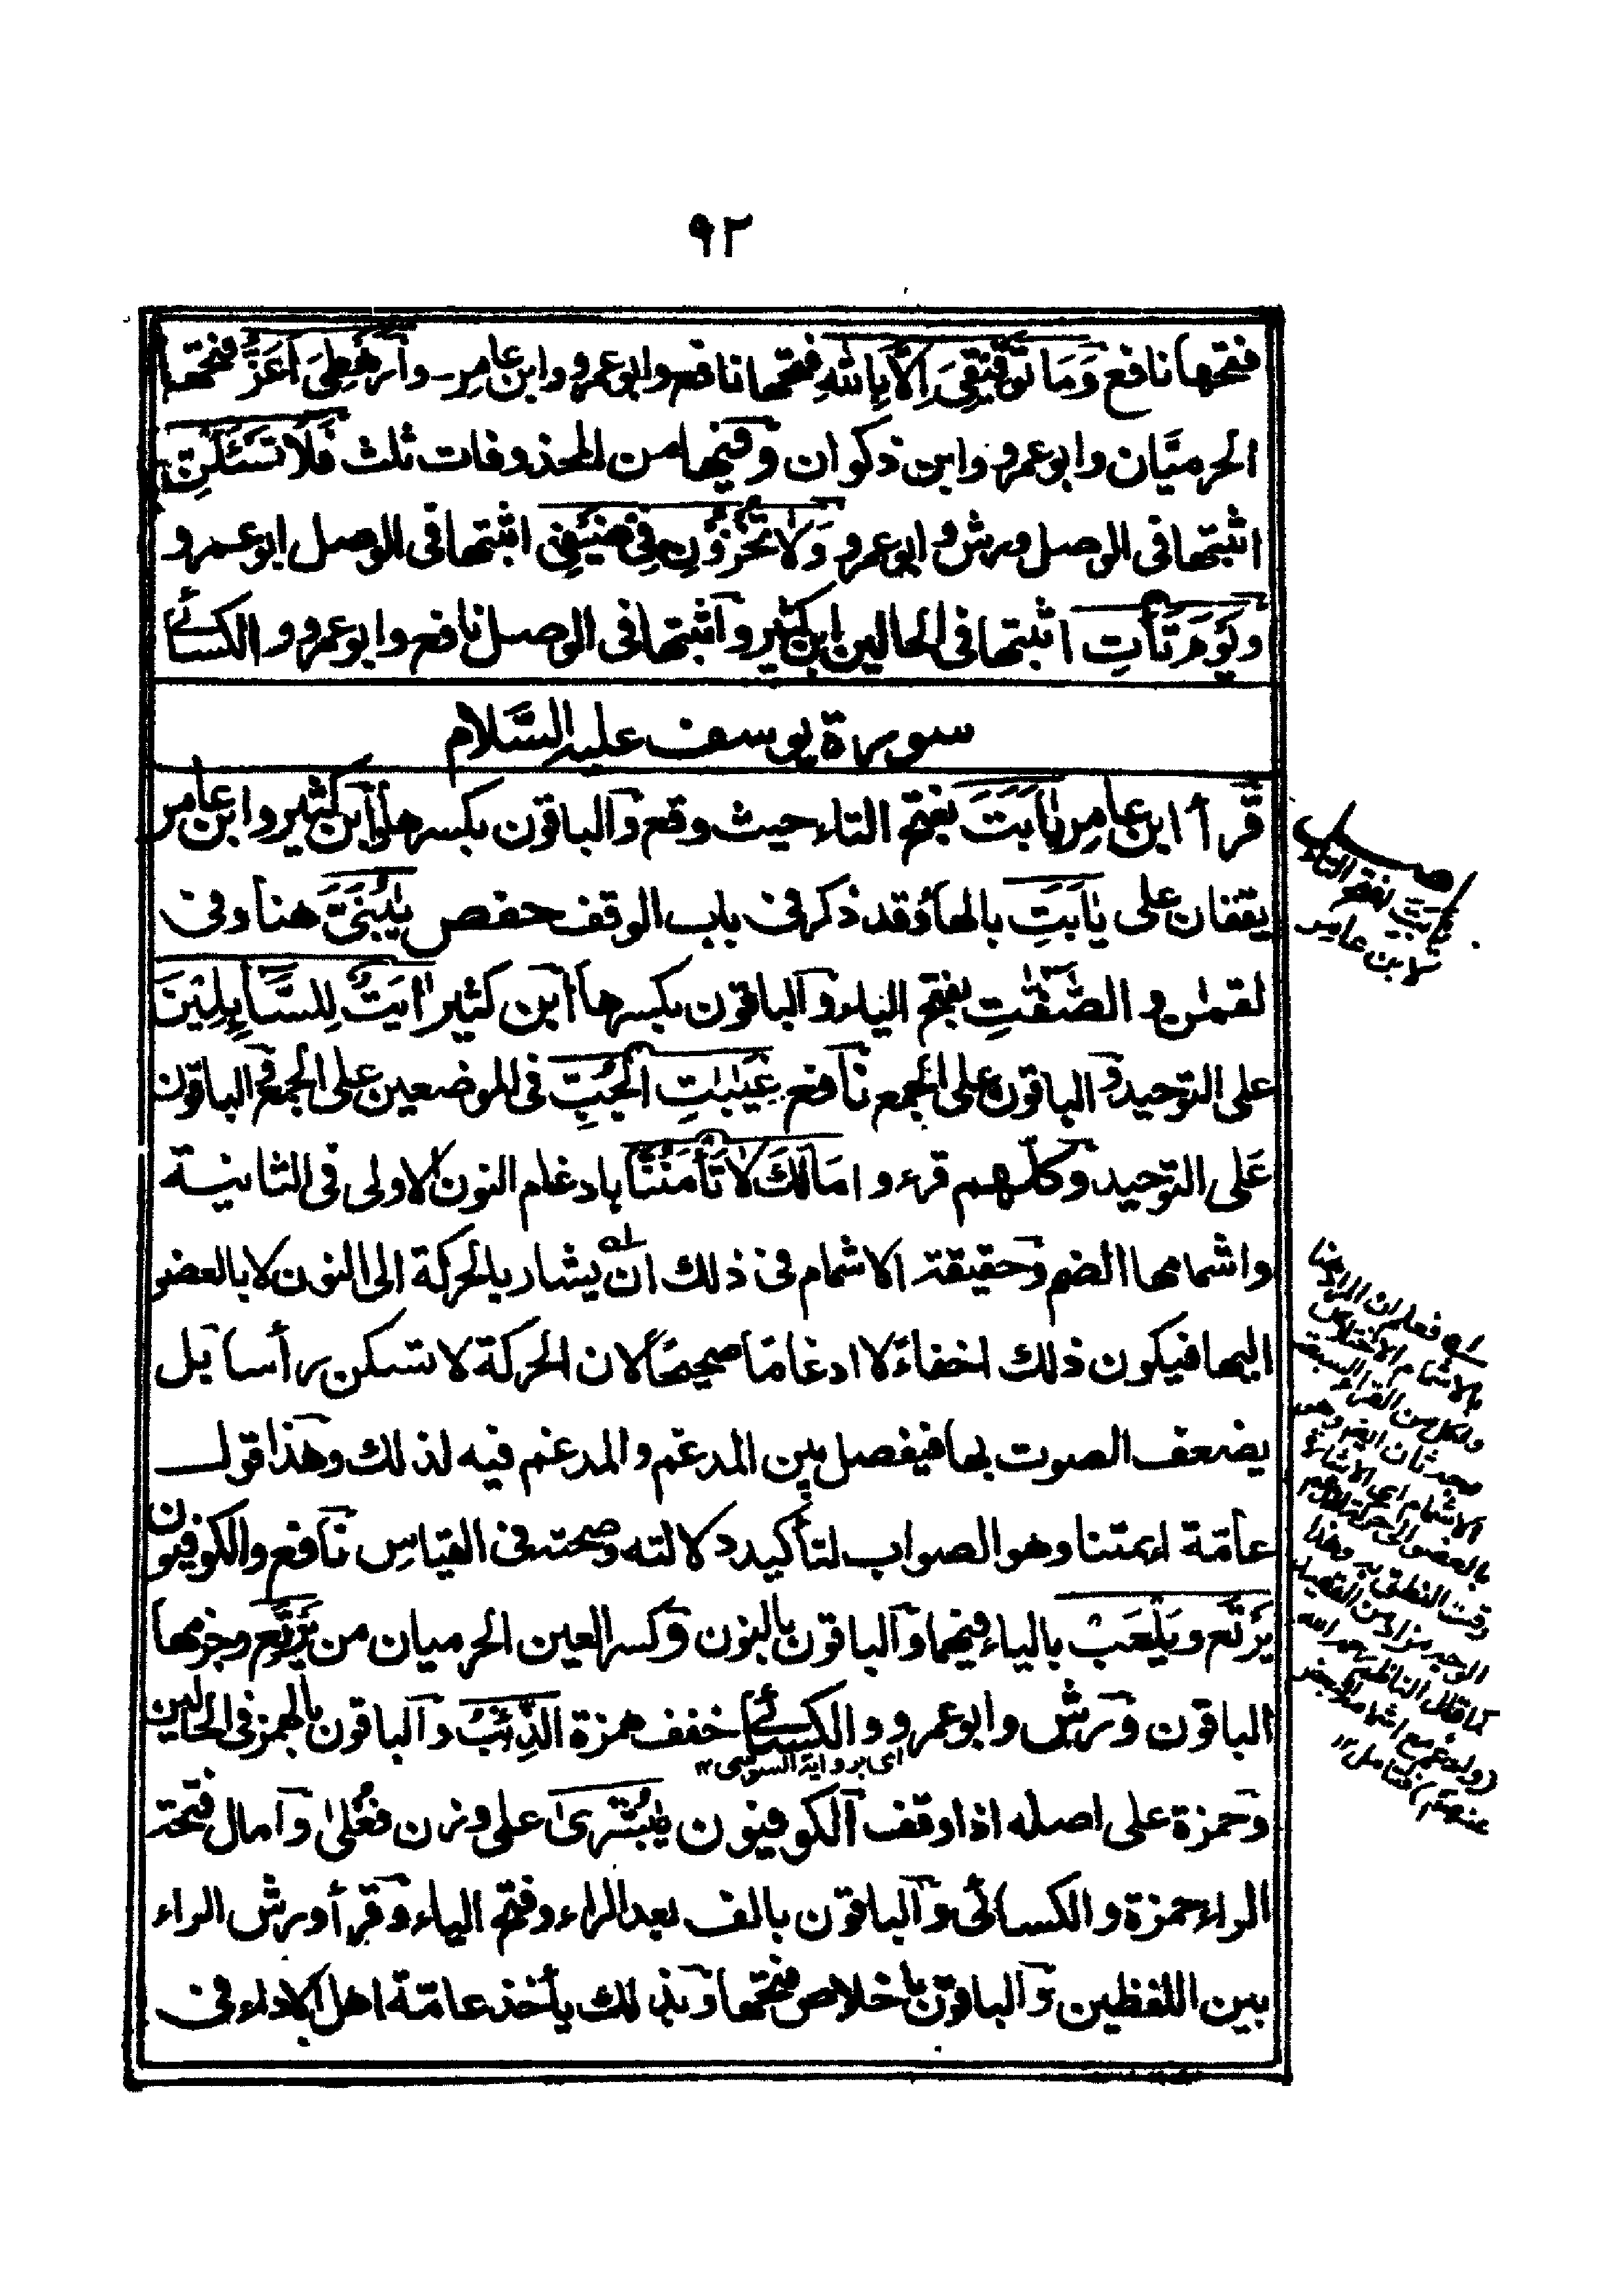 ٩٢
فتحها نافع وَمَا تَوْفِيْقِىَ اِلَّا بِاللّٰهِ فتحها نافع وابو عمرو وابن عامر وأَرَهْطِىَ اَعَزُّ فتحها
الحرميَّان وابو عمرو وابن ذكوان وفيها من المحذوفات ثلث فَلَا تَسْئَلْنِ
اثبتها فى الوصل ورش و ابو عمرو وَلَا تُخْزُوْنِ فِىْ ضَيْفِىْ اثبتها فى الوصل ابو عمرو
و يَوْمَ تَأْتِ اثبتها فى الحالين ابن كثير و اثبتها فى الوصل نافع وابو عمرو و الكسائى
سورة يوسف عليه السَّلام
قرأ ابن عامر يٰاَبَتَ بفتح التاء حيث وقع والباقون بكسرها وابن كثير وابن عامر
يقفان على يٰاَبَتِ بالهاء وقد ذكر فى باب الوقف حفص يٰبُنَىَّ هنا وفى
لقمٰن و الصّٰفّٰتِ بفتح الياء و الباقون بكسرها ابن كثير اٰيَتٌ لِلسَّآئِلِيْنَ
على التوحيد و الباقون على الجمع نافع غَيٰبٰتِ الْجُبِّ فى الموضعين على الجمع و الباقون
عَلى التوحيد وكلهم قرء و امَالَكَ لَا تَأْمَنَّنَا بادغام النون الاولى فى الثانية
واشمامها الضم وحقيقة الاشمام فى ذلك ان يشار بالحركة الى النون لا بالعضو
اليها فيكون ذلك اخفاءً لا ادغامًا صحيحًا لان الحركة لا تسكن رأسا بل
يضعف الصوت بها فيفصل بين المدغم و المدغم فيه لذلك وهذا قول
عامّة ائمتنا وهو الصواب لتأكيد دلالته وصحته فى القياس نافع والكوفيون
يَرْتَع و يَلْعَبْ بالياء فيهما والباقون بالنون وكسر العين الحرميان من يَرْتَع وجزمها
الباقون و ورش وابو عمرو و الكسائى خفف همزة الذِّئْبُ و الباقون بالهمز فى الحالين
اى برواية السوسى ١٢
وحمزة على اصله اذا وقف الكوفيون يٰبُشْرٰى على وزن فُعْلٰى و امال فتحة
الراء حمزة و الكسائى و الباقون بالف بعد الراء وفتح الياء و قرأ ورش الراء
بين اللفظين و الباقون باخلاص فتحها وبذلك يأخذ عامّة اهل الاداء فى
يٰاَبَتَ بفتح التاء
لابن عامر